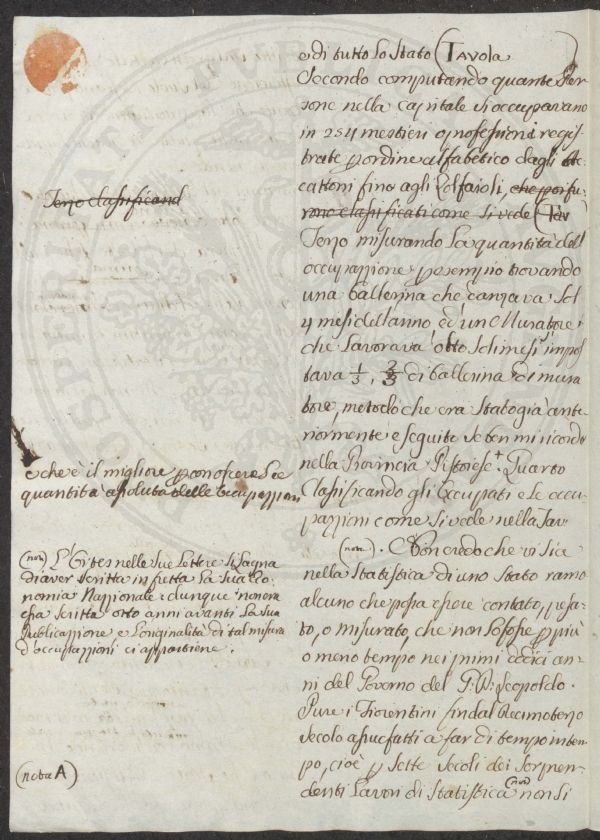 e di tutto lo Stato (Tavola      )
Secondo computando quante Per
sone nella capitale si occupavano
in 254 mestieri o professioni regis
trate p ordine alfabetico dagli Ac
cattoni fino agli Zolfaioli, che poi fu
rono classificati come si vede (Tav
Terzo misurando la quantità dell'
occupazzione p esempio trovando
una ballerina che danzava sol
4 mesi dell'anno, ed un Muratore
che lavorava otto soli mesi, impos
tava 1/3, 2/3 di ballerina e di mura
tore, metodo che era stato già ante
riormente eseguito se ben mi ricordo
nella Provincia Pistoiese + Quarto
Classificando gli Occupati e le occu
pazzioni come si vede nella Tav
(nota). Non credo che vi sia
nella statistica di uno Stato ramo
alcuno che possa essere contato, pesa
to, o misurato, che non lo fosse p più
o meno tempo nei primi dodici an
ni del Governo del G: D: Leopoldo.
Pure i Fiorentini sin dal decimoterzo
secolo assuefatti a far di tempo in tem
po, cioè p sette secoli dei sorpren
denti lavori di Statistica (nota) non si
Terzo classificand
e che è il migliore p conoscere le
quantità assolute delle occupazzioni
(nota) L'Ortes nelle sue Lettere si lagna
di aver scritta in fretta la sua Eco
nomia Nazzionale: dunque non era
scritta otto anni avanti la sua
Pubblicazzione, e l'originalità di tal misura
d'occupazzioni ci appartiene.
(nota A)